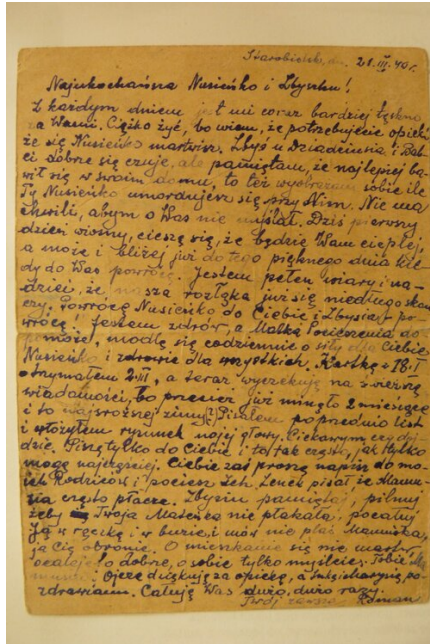 Starobielsk, dn. 21.III.40 r.
Najukochańsza Nusieńko i Zbyszku!
Z każdym dniem jest mi coraz bardziej tęskno
za Wami. Ciężko żyć, bo wiem, że potrzebujecie opieki
że się Nusieńko martwisz. Zbyś u Dziadziusia i Bab-
ci dobrze się czuje, ale pamiętam, że najlepiej ba-
wił się w swoim domu, to też wyobrażam sobie ile
Ty Nusieńko umordujesz się przy Nim. Nie ma
chwili, abym o Was nie myślał. Dziś pierwszy
dzień wiosny, cieszę się, że będzie Wam cieplej,
a może i bliżej już do tego pięknego dnia kie-
dy do Was powrócę. Jestem pełen wiary i na-
dziei, że nasza rozłąka już się niedługo skoń
czy. Powrócę Nusieńko do Ciebie i Zbysia, po-
wrócę! Jestem zdrów, a Matka Boska do
pomoże, modlę się codziennie o siły dla Ciebie
Nusieńko i zdrowie dla wszystkich. Kartkę z 18.I
otrzymałem 2.III, a teraz wyczekuję na świeże
wiadomości, bo przecież już minęło 2 miesiące
i to najsroższej zimy(?) Pisałem poprzednio list
i włożyłem rysunek mojej głowy. Ciekawym czy doj-
dzie. Piszę tylko do Ciebie i to tak często, jak tylko
mogę najczęściej. Ciebie zaś proszę napisz do mo-
ich Rodziców i pociesz Ich. Lenek pisał że Mamu-
sia często płacze. Zbysiu pamiętaj, pilnuj
żeby Twoja Mateńka nie płakała, pocałuj
Ją w rączkę i w buzię, i mów nie płacz Mamuśka,
ja Cię obronię. O mieszkanie się nie martw,
ocalejcie dobrze, o sobie tylko myślcie. Tobie
Ojcze dziękuję za opiekę, a po-
zdrawiam. Całuję Was dużo, dużo razy.
Twój zawsze Roman